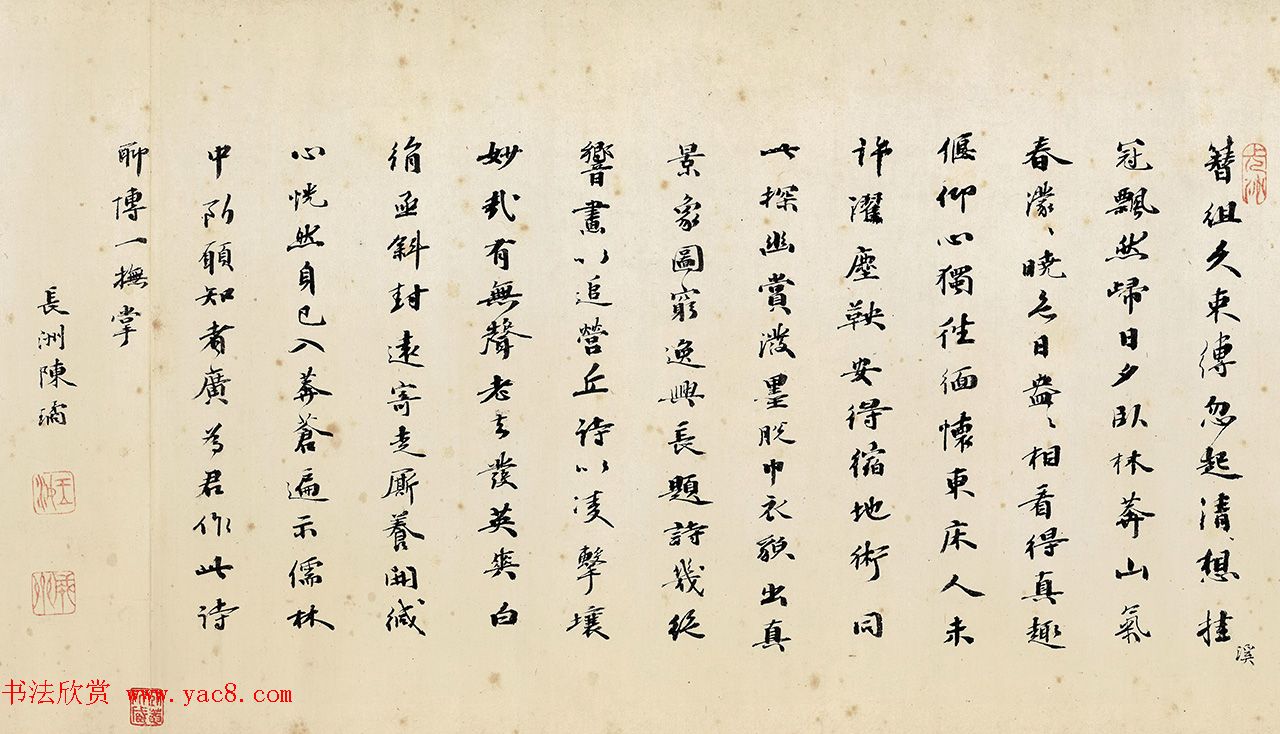 簪組久束縛忽起清想挂
冠飄然歸日夕臥林莽山氣
春濛〻曉色日盎〻相看得真趣
偃仰心獨往緬懷東床人未
許濯塵鞅安得縮地術同
此探幽賞潑墨脫巾衣貌出真
景象圖窮逸興長題詩幾紙
響畫以追營丘詩以凌擊壤
妙哉有無聲老去發英爽白
絹亟斜封遠寄走廝養開緘
心恍然身已入莽蒼遍示儒林
中所願知者廣為君作此詩
聊博一撫掌
長洲陳璚
溪
书法欣赏 www.yac8.com